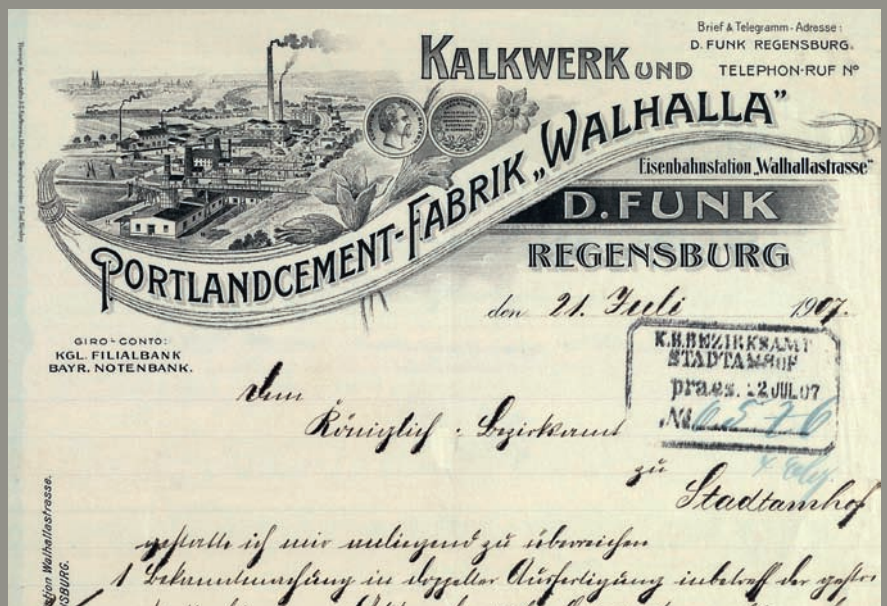 Brief & Telegramm-Adresse:
D. FUNK REGENSBURG.
KALKWERK UND
TELEPHON-RUF No
PORTLANDCEMENT-FABRIK „WALHALLA”
Eisenbahnstation „Walhallastrasse”
D. FUNK
REGENSBURG
den 21. Juli 1907.
GIRO-CONTO:
KGL. FILIALBANK
BAYR. NOTENBANK.
K.B.BEZIRKSAMT
STADTAMHOF
praes. 22 JUL 07
No 6576
Dem
Königlich. Bezirksamt
zu
Stadtamhof
gestatte ich mir anliegend zu überreichen
1 Bekanntmachung in doppelter Ausfertigung inbetreff der
tion Walhallastrasse.
NSBURG.